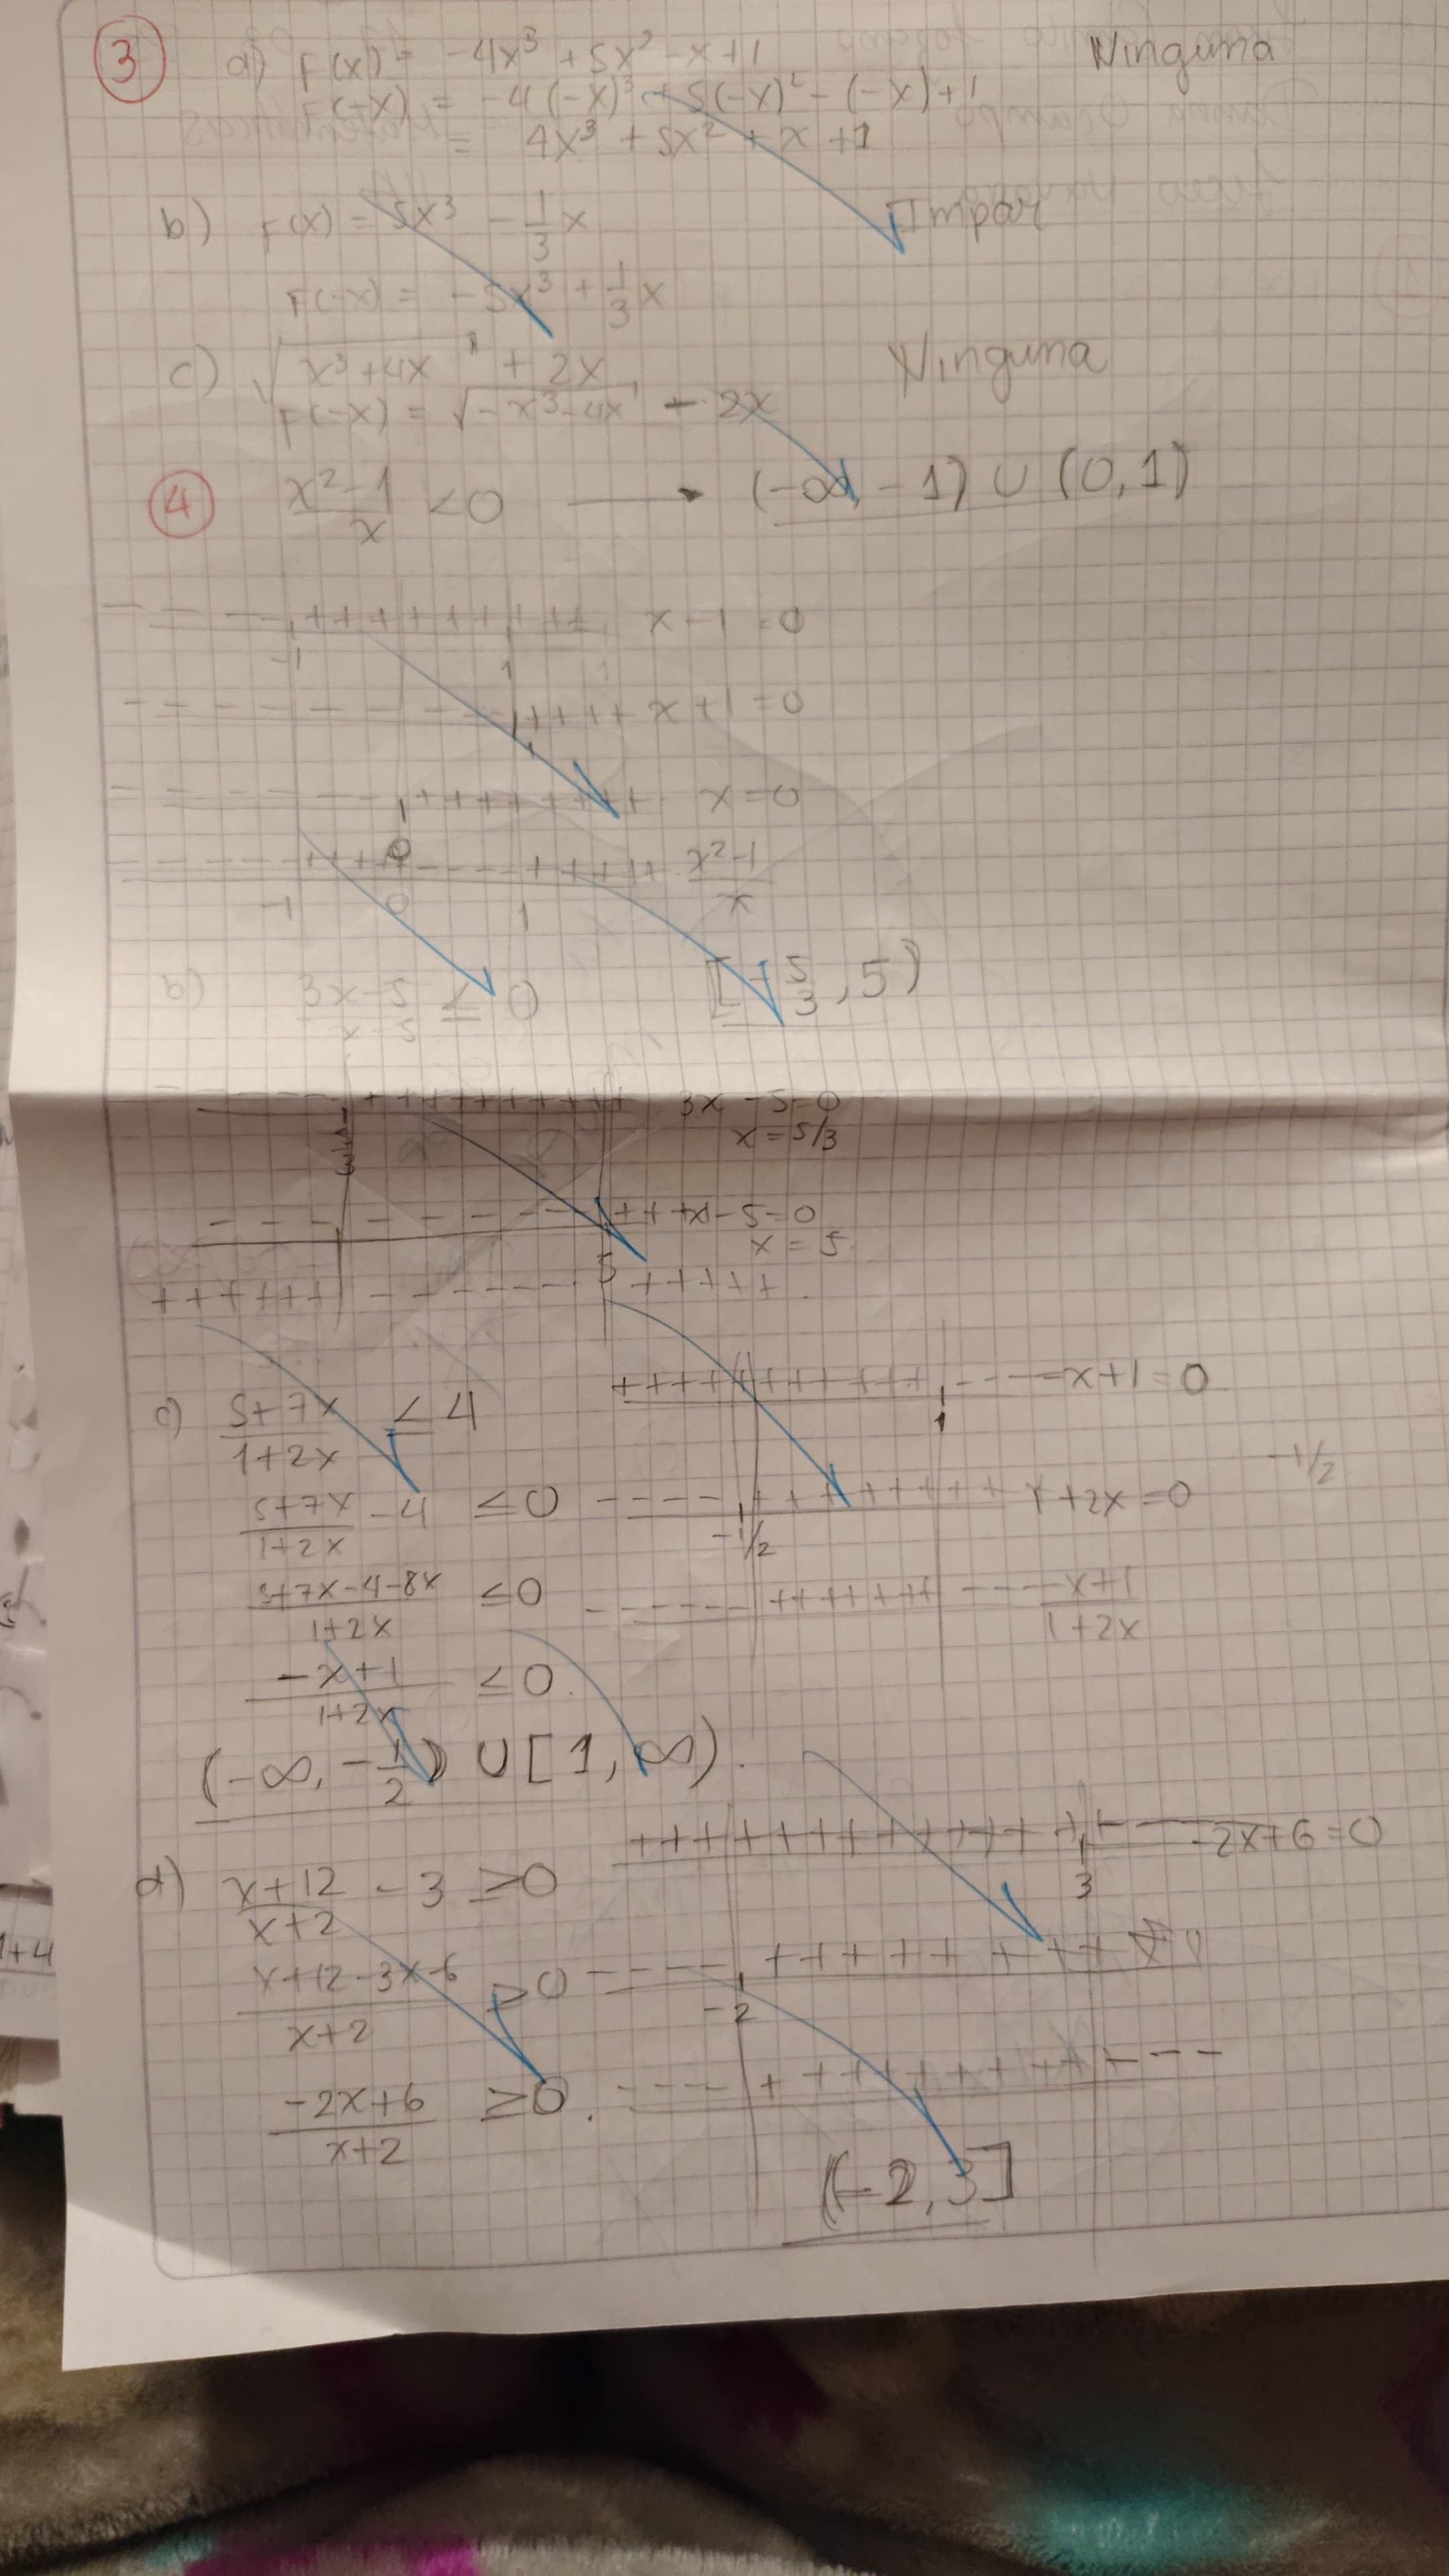 3 a) F(x) = -4x³ + 5x² - x + 1 Ninguna
F(-x) = -4(-x)³ + 5(-x)² - (-x) + 1
= 4x³ + 5x² + x + 1
b) F(x) = 5x³ - 1/3 x Impar
F(-x) = -5x³ + 1/3 x
c) √(x³+4x) + 2x Ninguna
F(-x) = √(-x³-4x) - 2x
4 (x²-1)/x < 0 → (-∞, -1) ∪ (0, 1)
- - - - + + + + + + + + + x-1=0
-1 1
- - - - - - - - + + + + x+1=0
1
- - - - - - + + + + + + + + x=0
0
- - - - - + + + + - - - - + + + + + (x²-1)/x
-1 0 1
b) (3x-5)/(x-5) ≤ 0 [5/3, 5)
- - - - + + + + + + + + + 3x-5=0
5/3 x=5/3
- - - - - - - - - + + + x-5=0
5 x=5
+ + + + + + - - - - - - + + + + +
c) (5+7x)/(1+2x) ≤ 4 + + + + + + + + + + + - - - -x+1=0
1
(5+7x)/(1+2x) - 4 ≤ 0 - - - - + + + + + + + + 1+2x=0 -1/2
-1/2
(5+7x-4-8x)/(1+2x) ≤ 0 - - - - - + + + + + + - - - (-x+1)/(1+2x)
(-x+1)/(1+2x) ≤ 0
(-∞, -1/2) ∪ [1, ∞)
d) (x+12)/(x+2) - 3 ≥ 0 + + + + + + + + + + + + + - - - -2x+6=0
3
(x+12-3x-6)/(x+2) ≥ 0 - - - - + + + + + + + + +
-2
(-2x+6)/(x+2) ≥ 0 - - - - + + + + + + + + + - - -
(-2, 3]